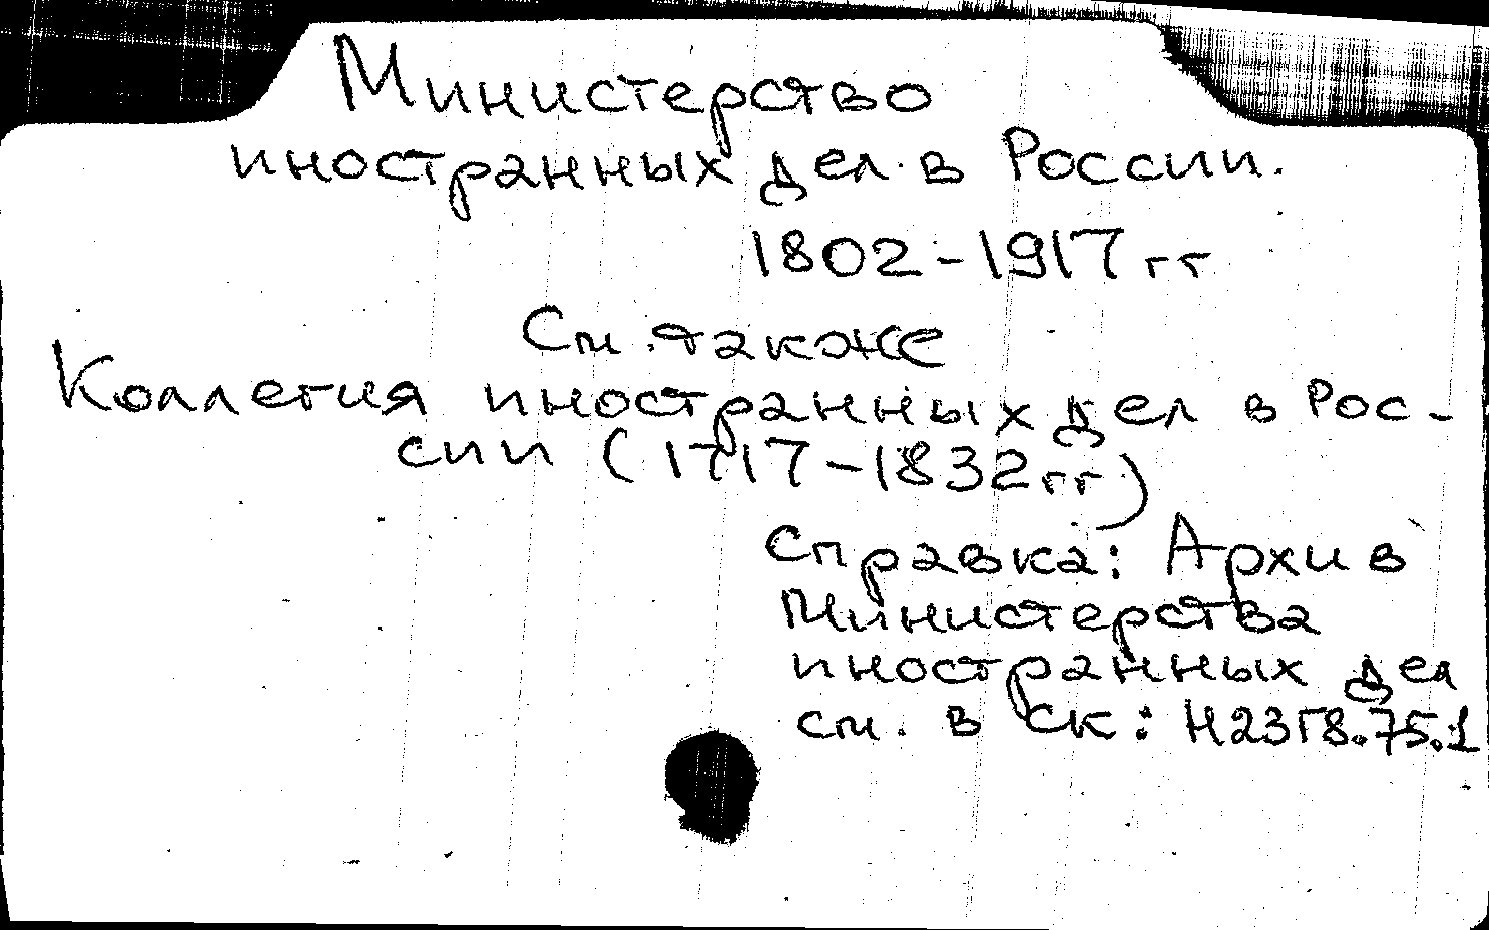 Министерство
иностранных дел в России.
1802-1917 гг
См. также
Коллегия иностранных дел в Рос-
сии (1717-1832 гг)
Справка: Архив
Министерства
иностранных дел
см. в СК: Н23Г8.75.1